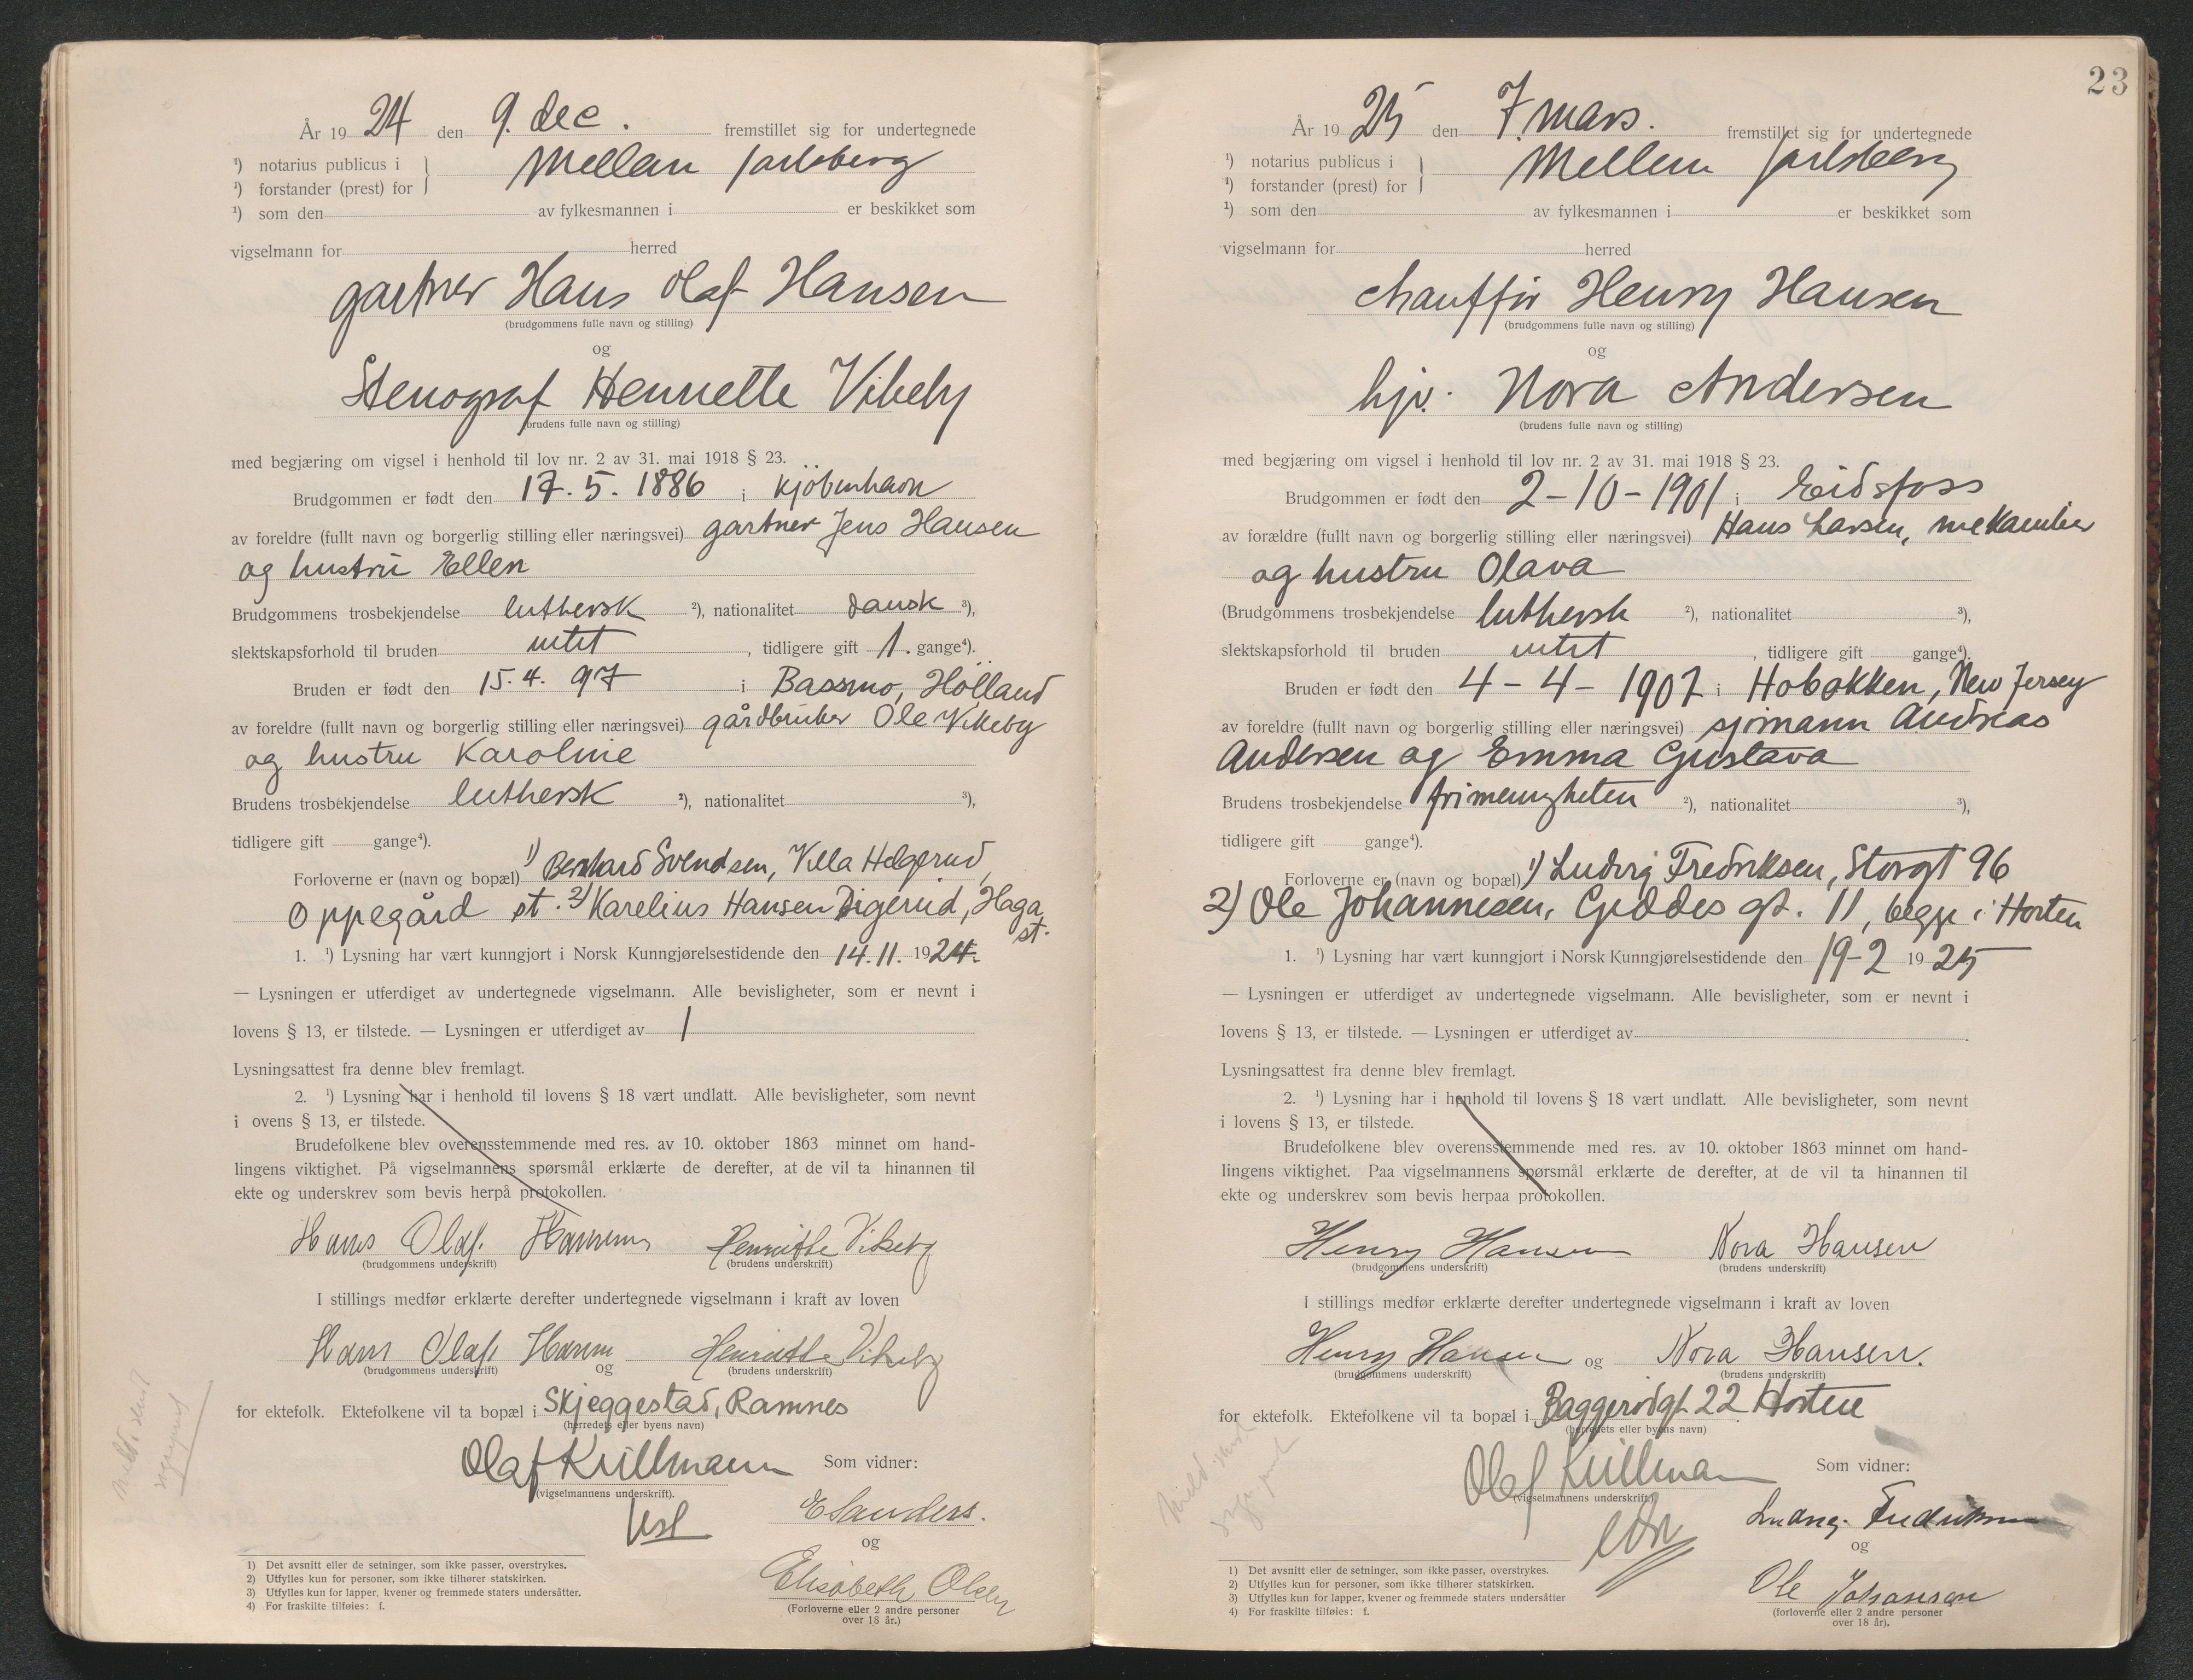 År 1924 den 9. dec. fremstillet sig for undertegnede
¹) notarius publicus i } Mellem Jarlsberg
¹) forstander (prest) for
¹) som den av fylkesmannen i er beskikket som
vigselmann for herred
gartner Hans Olaf Hansen
(brudgommens fulle navn og stilling)
og
Stenograf Henriette Vikeby
(brudens fulle navn og stilling)
med begjæring om vigsel i henhold til lov nr. 2 av 31. mai 1918 § 23.
Brudgommen er født den 17. 5. 1886 i Kjöbenhavn
av foreldre (fullt navn og borgerlig stilling eller næringsvei) gartner Jens Hansen
og hustru Ellen
Brudgommens trosbekjendelse luthersk ²), nationalitet dansk ³),
slektskapsforhold til bruden intet, tidligere gift 1. gange⁴).
Bruden er født den 15. 4. 97 i Bassmo, Hölland
av foreldre (fullt navn og borgerlig stilling eller næringsvei) gårdbruker Ole Vikeby
og hustru Karoline
Brudens trosbekjendelse luthersk ²), nationalitet ³),
tidligere gift gange⁴).
Forloverne er (navn og bopæl) 1) Bernhard Svendsen, Villa Helgerud,
Oppegård st. 2) Karelius Hansen Digerud, Haga
st.
1. ¹) Lysning har vært kunngjort i Norsk Kunngjørelsestidende den 14. 11. 1924.
— Lysningen er utferdiget av undertegnede vigselmann. Alle bevisligheter, som er nevnt i
lovens § 13, er tilstede. — Lysningen er utferdiget av
Lysningsattest fra denne blev fremlagt.
2. ¹) Lysning har i henhold til lovens § 18 vært undlatt. Alle bevisligheter, som nevnt
i ovens § 13, er tilstede.
Brudefolkene blev overensstemmende med res. av 10. oktober 1863 minnet om hand-
lingens viktighet. På vigselmannens spørsmål erklærte de derefter, at de vil ta hinannen til
ekte og underskrev som bevis herpå protokollen.
Hans Olaf Hansen Henriette Vikeby
(brudgommens underskrift) (brudens underskrift)
I stillings medfør erklærte derefter undertegnede vigselmann i kraft av loven
Hans Olaf Hansen og Henriette Vikeby
(brudgommens underskrift) (brudens underskrift)
for ektefolk. Ektefolkene vil ta bopæl i Skjeggestad, Ramnes
(herredets eller byens navn)
Olaf Krillmann Som vidner:
(vigselmannens underskrift).
E Sanders.
og
Elisabeth Olsen
(Forloverne eller 2 andre personer
over 18 år.)
1) Det avsnitt eller de setninger, som ikke passer, overstrykes.
2) Utfylles kun for personer, som ikke tilhører statskirken.
3) Utfylles kun for lapper, kvener og fremmede staters undersåtter.
4) For fraskilte tilføies: f.
23
År 1925 den 7. mars. fremstillet sig for undertegnede
¹) notarius publicus i } Mellem Jarlsberg
¹) forstander (prest) for
¹) som den av fylkesmannen i er beskikket som
vigselmann for herred
chaufför Henry Hansen
(brudgommens fulle navn og stilling)
og
hjv. Nora Andersen
(brudens fulle navn og stilling)
med begjæring om vigsel i henhold til lov nr. 2 av 31. mai 1918 § 23.
Brudgommen er født den 2-10-1901 i Eidsfoss
av forældre (fullt navn og borgerlig stilling eller næringsvei) Hans Larsen, mekaniker
og hustru Olava
(Brudgommens trosbekjendelse luthersk ²), nationalitet ³),
slektskapsforhold til bruden intet, tidligere gift gange⁴).
Bruden er født den 4-4-1907 i Hobokken, New Jersey
av foreldre (fullt navn og borgerlig stilling eller næringsvei) sjömann Andreas
Andersen og Emma Gustava
Brudens trosbekjendelse frimenigheten ²), nationalitet ³),
tidligere gift gange⁴).
Forloverne er (navn og bopæl) 1) Ludvig Fredriksen, Storgt 96
2) Ole Johannesen, Geddes gt. 11, begge i Horten
1. ¹) Lysning har vært kunngjort i Norsk Kunngjørelsestidende den 19-2 1925
— Lysningen er utferdiget av undertegnede vigselmann. Alle bevisligheter, som er nevnt i
lovens § 13, er tilstede. — Lysningen er utferdiget av
Lysningsattest fra denne blev fremlagt.
2. ¹) Lysning har i henhold til lovens § 18 vært undlatt. Alle bevisligheter, som nevnt
i lovens § 13, er tilstede.
Brudefolkene blev overensstemmende med res. av 10. oktober 1863 minnet om hand-
lingens viktighet. Paa vigselmannens spørsmål erklærte de derefter, at de vil ta hinannen til
ekte og underskrev som bevis herpaa protokollen.
Henry Hansen Nora Hansen
(brudgommens underskrift) (brudens underskrift)
I stillings medfør erklærte derefter undertegnede vigselmann i kraft av loven
Henry Hansen og Nora Hansen.
(brudgommens underskrift) (brudens underskrift)
for ektefolk. Ektefolkene vil ta bopæl i Baggerödgt 22 Horten
(herredets eller byens navn)
Olaf Krillmann Som vidner:
(vigselmannens underskrift.)
Ludvig Fredriksen
og
Ole Johansen
(forloverne eller 2 andre personer
over 18 år).
1) Det avsnitt eller de setninger, som ikke passer, overstrykes.
2) Utfylles kun for personer, som ikke tilhører statskirken.
3) Utfylles kun for lapper, kvener og fremmede staters undersåtter
4) For fraskilte tilføies: f.